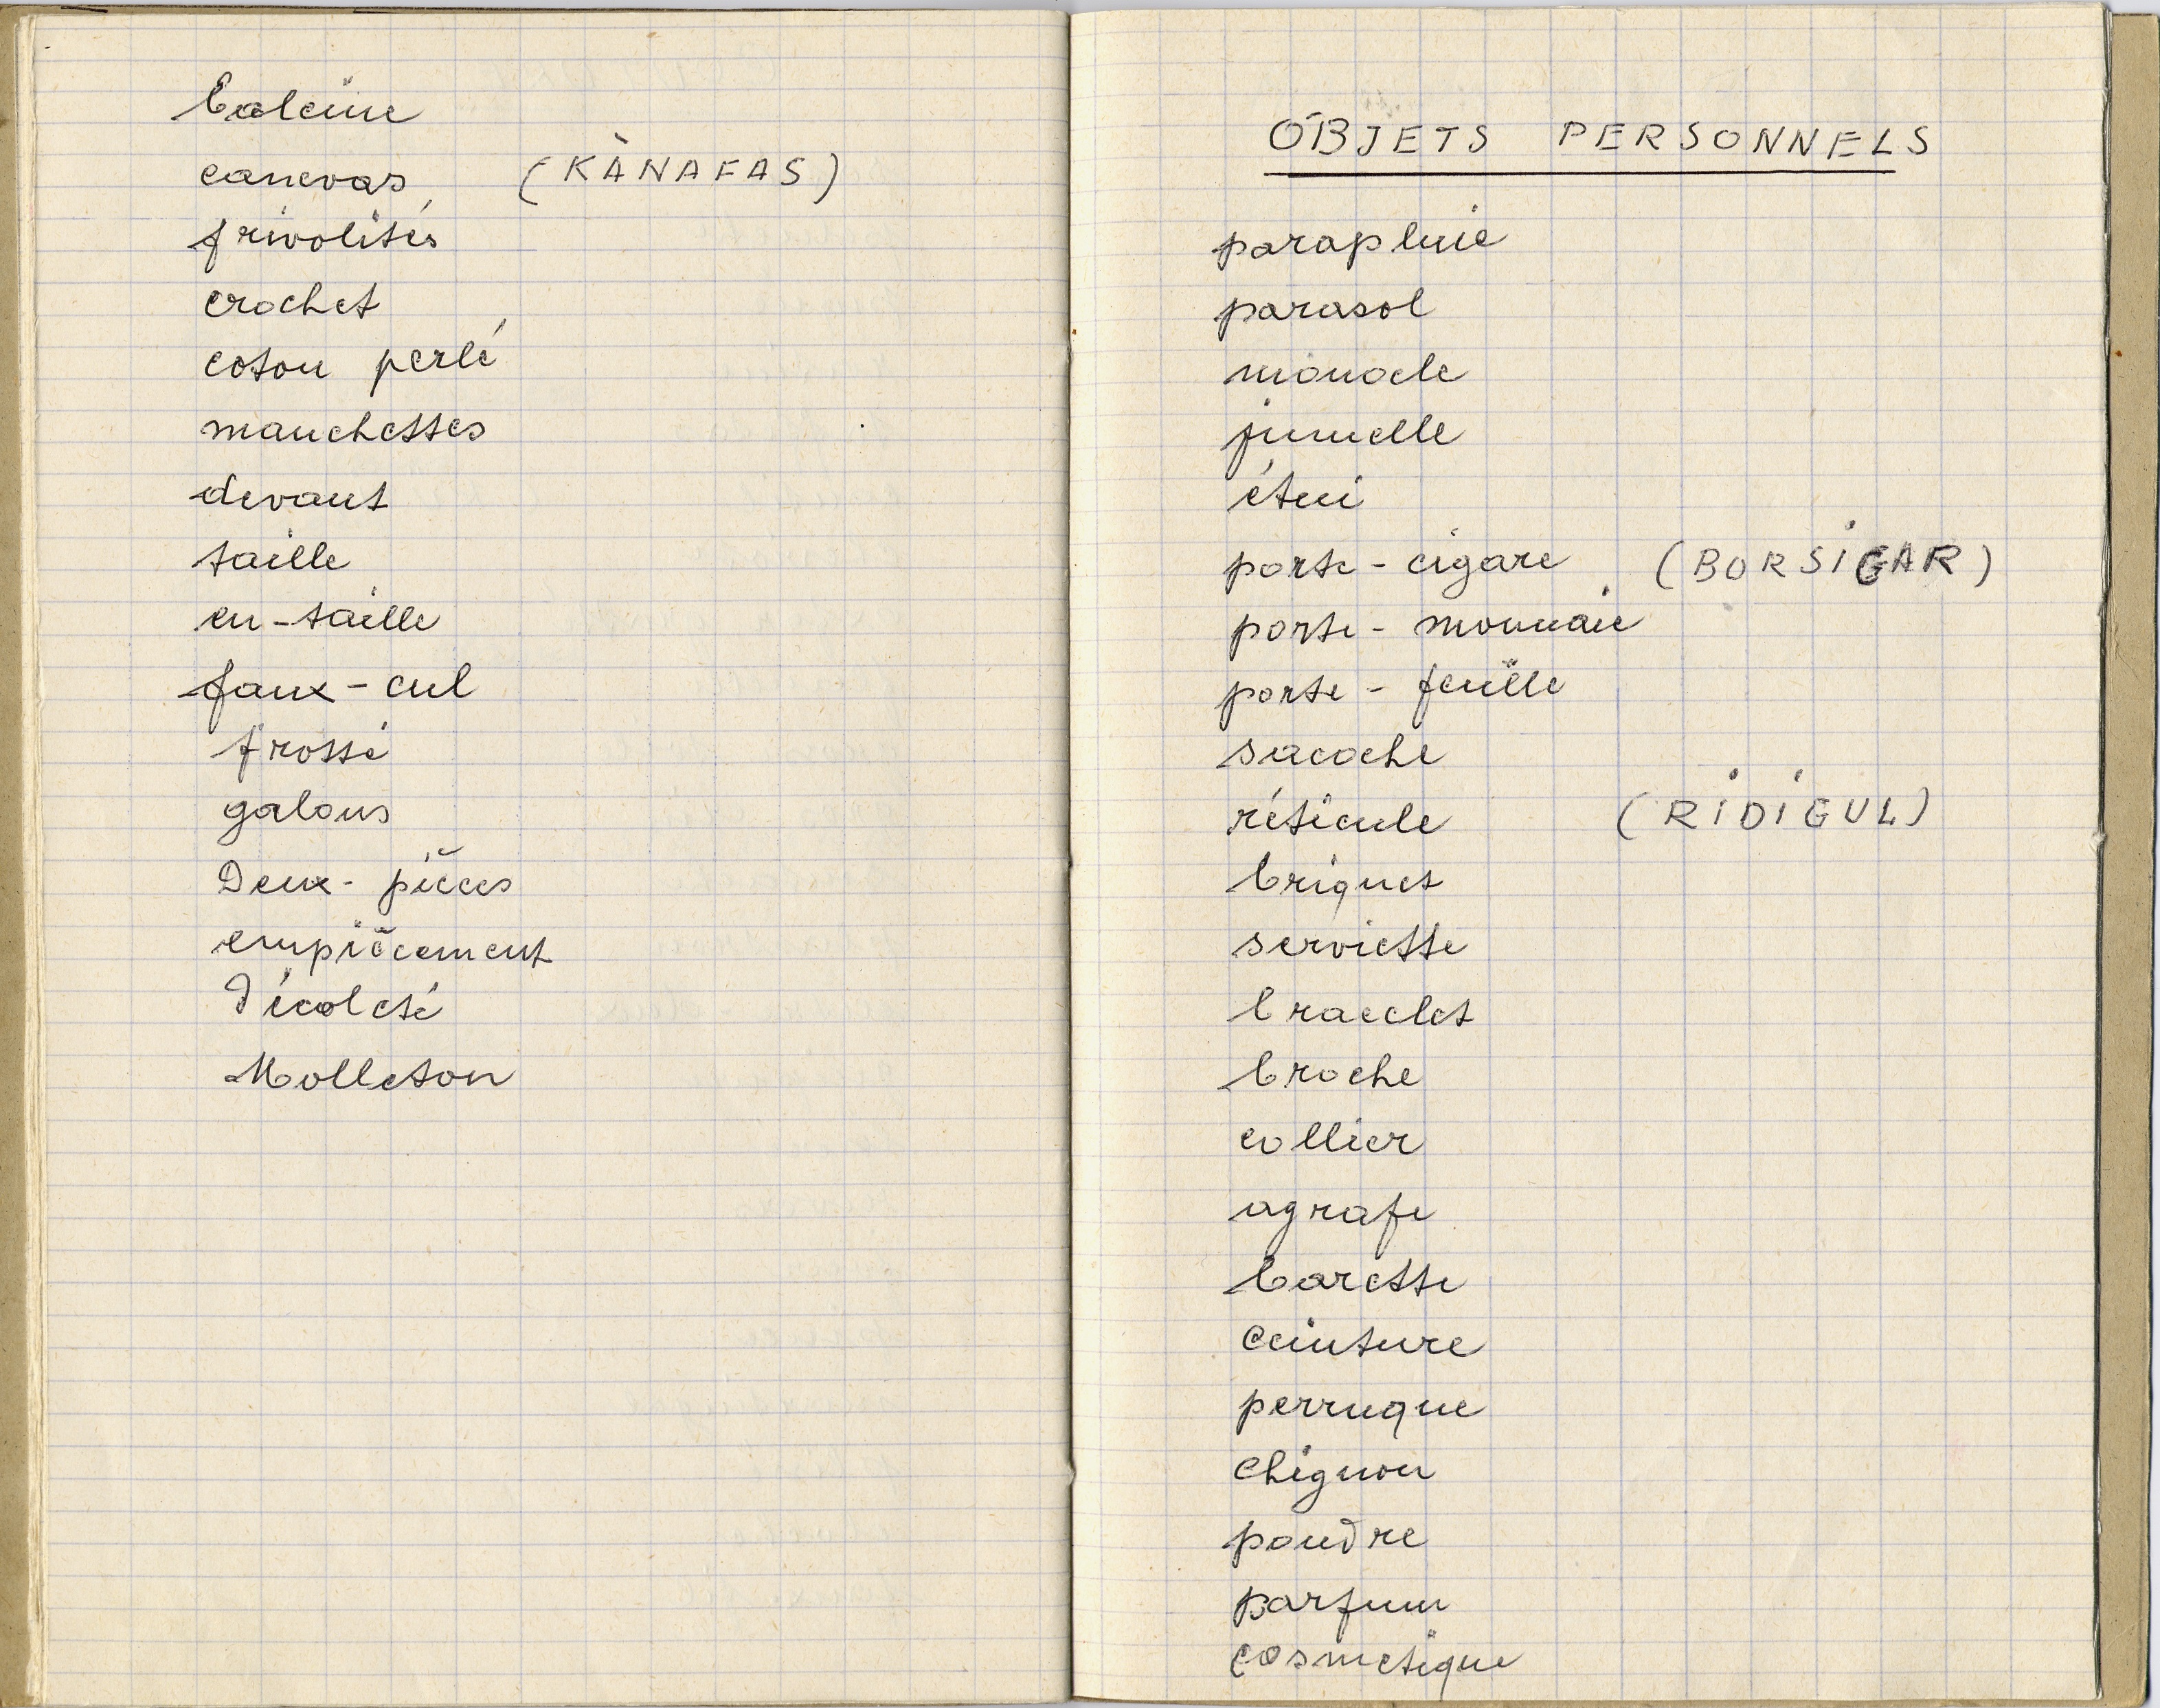 baleine
canevas (KÀNAFAS)
frivolités
crochet
coton perlé
manchettes
devant
taille
en-taille
faux-cul
frossé
galons
Deux-pièces
empiècement
Décolcté
Molleton
OBJETS PERSONNELS
parapluie
parasol
monocle
jumelle
étui
porte-cigare (BORSIGAR)
porte-monnaie
porte-feuille
sacoche
réticule (RIDIGUL)
briquet
serviette
bracelet
broche
collier
agrafe
barette
ceinture
perruque
chignon
poudre
parfum
cosmetique